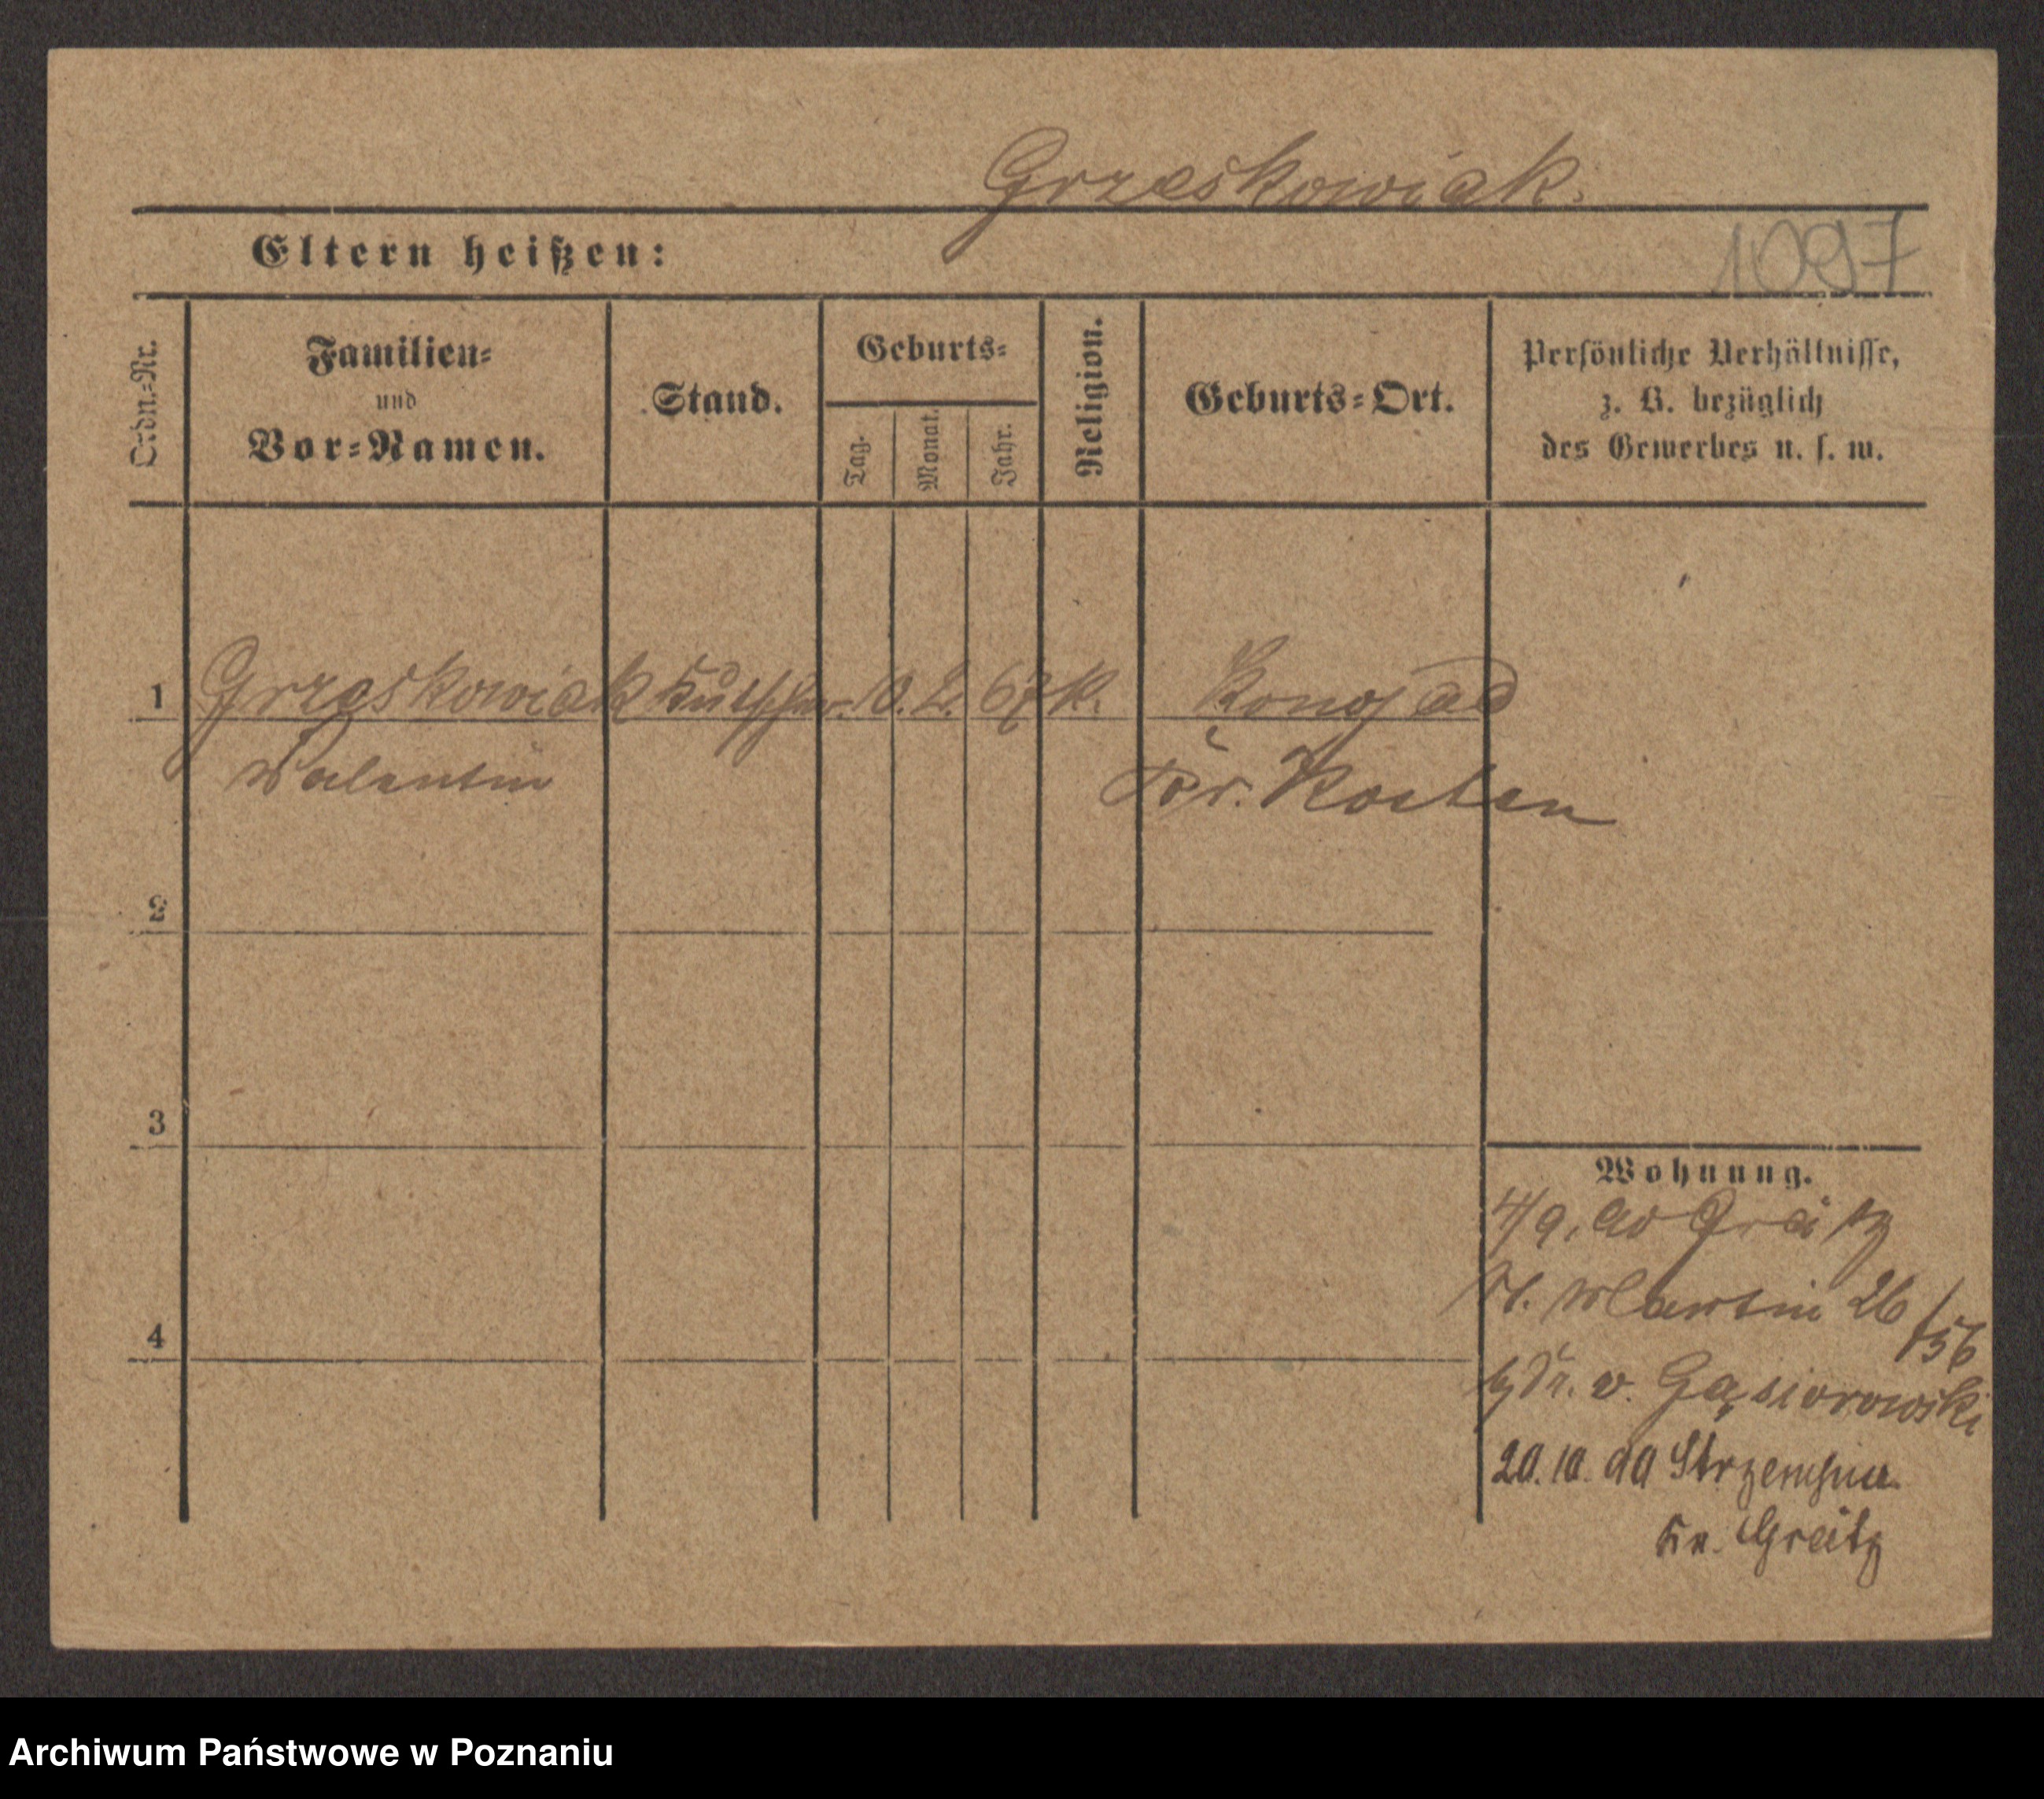 Grzeskowiak.
Eltern heißen:
1097
Ordn.=Nr.
Familien=
und
Vor=Namen.
Stand.
Geburts=
Tag.
Monat.
Jahr.
Religion.
Geburts=Ort.
Persönliche Verhältnisse,
z. B. bezüglich
des Gewerbes u. s. w.
1 Grzeskowiak Kutscher. 10. 2. 67 K. Konojad
Valentin Kr. Kosten
2
3
4
Wohnung.
4/9. 90 Grätz
St. Martin 26/56
b/ Dr. v. Gąsiorowski
20. 10. 90
Kr. Grätz
Archiwum Państwowe w Poznaniu